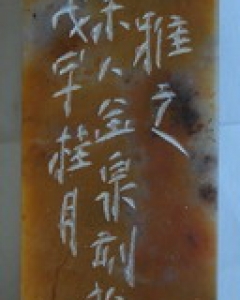 雅之
木人金泉刻於
戊午桂月